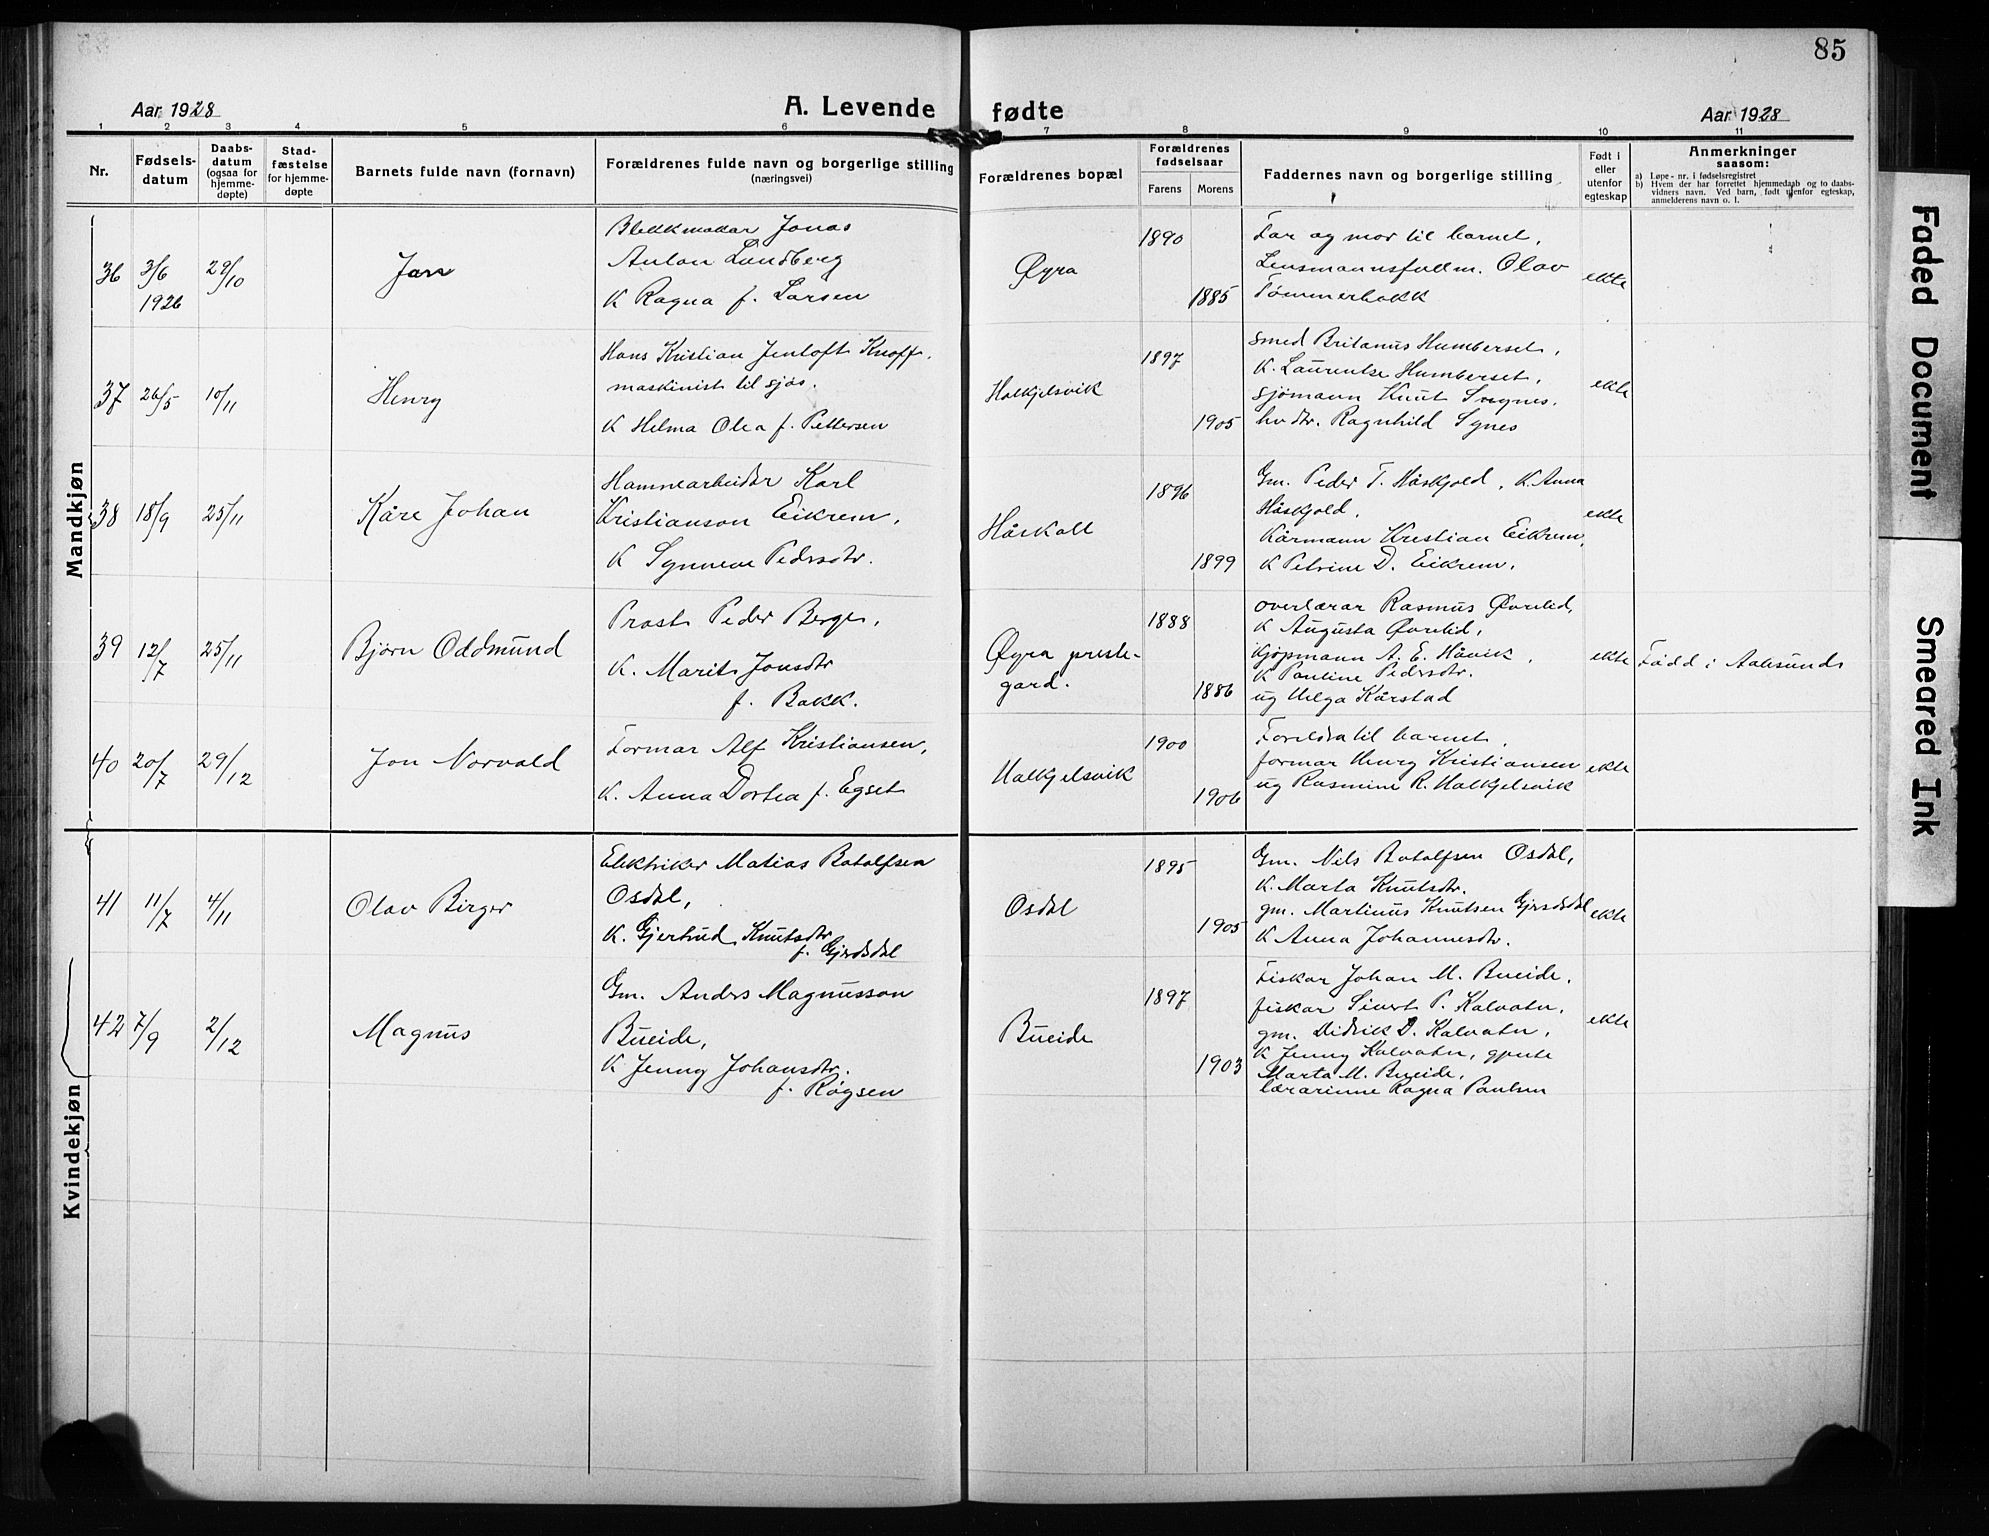 85
Aar 1928
A. Levende fødte
Aar 1928
1 2 3 4 5 6 7 8 9 10 11
Nr.
Fødsels-
datum
Daabs-
datum
(ogsaa for
hjemme-
døpte)
Stad-
fæstelse
for hjemme-
døpte
Barnets fulde navn (fornavn)
Forældrenes fulde navn og borgerlige stilling
(næringsvei)
Forældrenes bopæl
Forældrenes
fødselsaar
Farens
Morens
Faddernes navn og borgerlige stilling
Født i
eller
utenfor
egteskap
Anmerkninger
saasom:
a) Løpe-nr. i fødselsregistret
b) Hvem der har forrettet hjemmedaab og to daabs-
vidners navn. Ved barn, født utenfor egteskap,
anmelderens navn o. l.
Mandkjøn
36
3/6
1926
29/10
Jan
Blekkmakar Jonas
Anton Lundberg
K Ragna f. Larsen
Øyra
1890
1885
Far og mor til barnet,
Lensmannsfullm. Olav
Tømmerbakk
ekte
37
26/5
10/11
Henry
Hans Kristian Jentoft Knoff,
maskinist til sjøs.
K Helma Olea f. Pettersen
Halkjelsvik
1897
1905
smed Britanus Humberset,
K. Laurentse Humberset,
sjømann Knut Sygnes,
hvdtr. Ragnhild Sygnes
ekte
38
18/9
25/11
Kåre Johan
Hamnearbeidar Karl
Kristianson Eikrem,
K Synneve Pedersdtr.
Håskoll
1896
1899
Gm. Peder T. Håskjold, K. Anna
Håskjold,
Kårmann Kristian Eikrem,
K Petrine D. Eikrem.
ekte
39
12/7
25/11
Bjørn Oddmund
Prost Peder Berge,
K. Marit Jonsdtr
f. Bakk.
Øyra preste-
gard.
1888
1886
overlærar Rasmus Øvrelid,
K Augusta Øvrelid,
Kjøpmann A. E. Håvik,
K Pauline Pedersdtr.
ug Helga Kårstad
ekte
Fødd i Aalesund
40
20/7
29/12
Jon Norvald
Formar Alf Kristiansen,
K. Anna Dortea f. Egset
Halkjelsvik
1900
1906
Foreldra til barnet,
formar Henry Kristiansen
ug Rasmine R. Halkjelsvik
ekte
41
11/7
4/11
Olav Birger
Elektriker Matias Botolfsen
Osdal,
K. Gjertrud Knutsdtr
f. Gjerdsdal
Osdal
1895
1905
Gm. Nils Botolfsen Osdal,
K. Marta Knutsdtr.
gm. Martinus Knutsen Gjerdsdal
K Anna Johannesdtr.
ekte
Kvindekjøn
42
7/9
2/12
Magnus
Gm. Anders Magnusson
Bueide,
K Jenny Johansdtr.
f. Røgsen
Bueide
1897
1903
Fiskar Johan M. Bueide,
fiskar Sivert P. Kalvatn,
gm. Didrik D. Kalvatn,
K Jenny Kalvatn, gjente
Marta M. Bueide,
lærarinne Ragna Paulsen
ekte
Faded Document
Smeared Ink